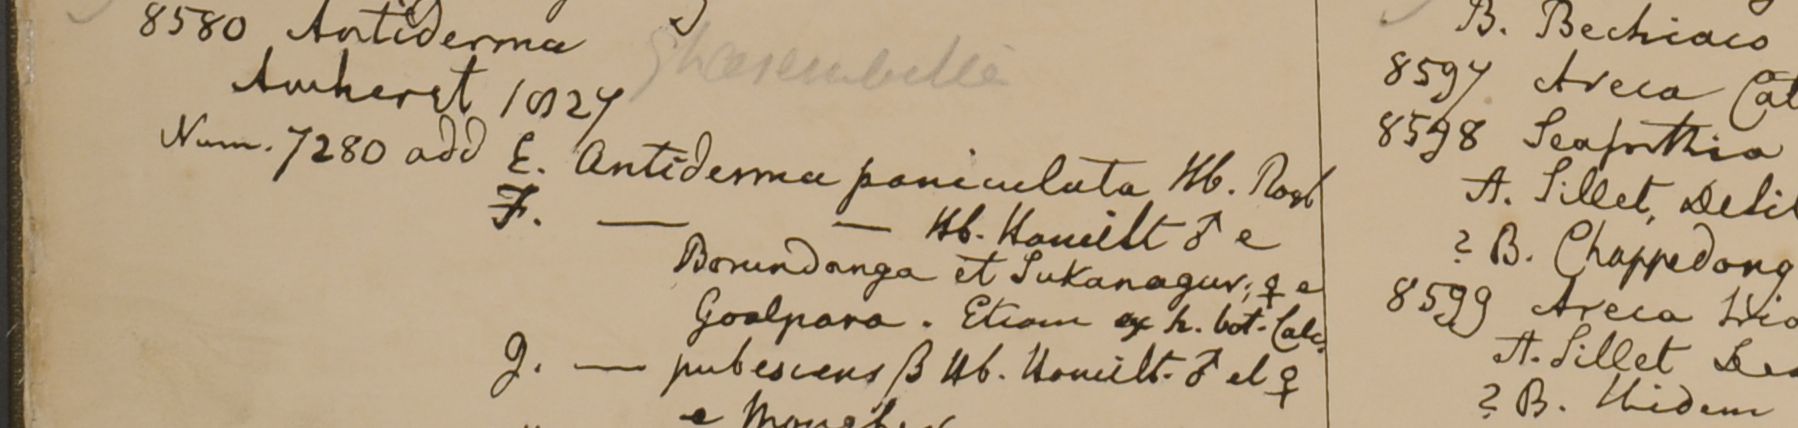 8580 Antiderma
Ghaesembella
Amherst 1827
Num. 7280 add E. Antiderma paniculata Hb. Roxb
F. — — Hb. Hamilt ♂ e
Borundanga et Sukanagur; ♀ e
Goalpara. Etiam ex h. bot. Calc.
G. — pubescens β Hb. Hamilt. ♂ et ♀
e
B. Bechiaco
8597 Areca Cat
8598 Seaforthia
A. Sillet, Desil
? B. Chappedong
8599 Areca
A. Sillet
? B. Ibidem